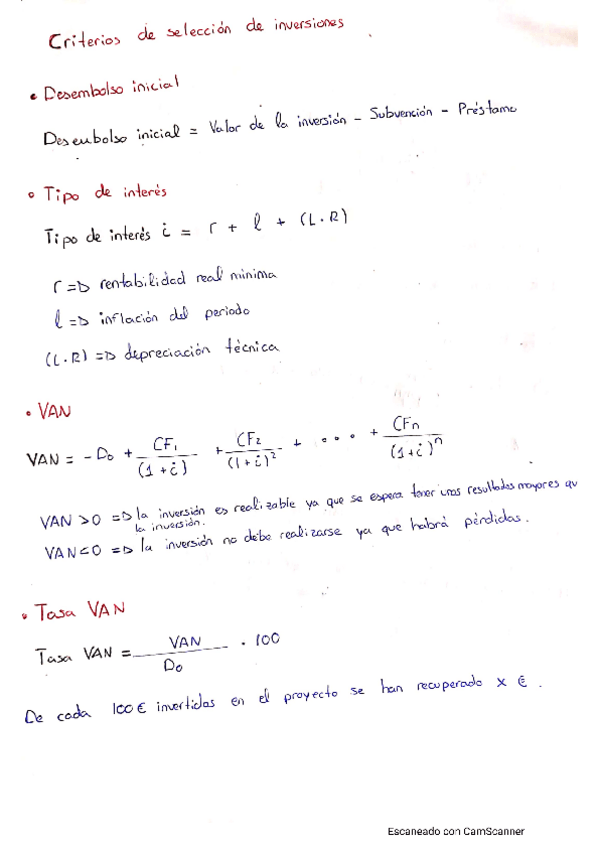 Criterios de selección de inversiones
• Desembolso inicial
Desembolso inicial = Valor de la inversión - Subvención - Préstamo
• Tipo de interés
Tipo de interés i = r + l + (L.R)
r => rentabilidad real mínima
l => inflación del periodo
(L.R) => depreciación técnica
• VAN
VAN = - D₀ + CF₁/(1+i) + CF₂/(1+i)² + ... + CFn/(1+i)ⁿ
VAN > 0 => la inversión es realizable ya que se espera tener unos resultados mayores qu
la inversión.
VAN < 0 => la inversión no debe realizarse ya que habrá pérdidas.
• Tasa VAN
Tasa VAN = VAN/D₀ . 100
De cada 100€ invertidos en el proyecto se han recuperado x €.
Escaneado con CamScanner